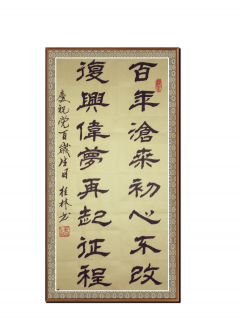 百年滄桑初心不改
復興偉夢再起征程
慶祝党百歲生日 桂林书